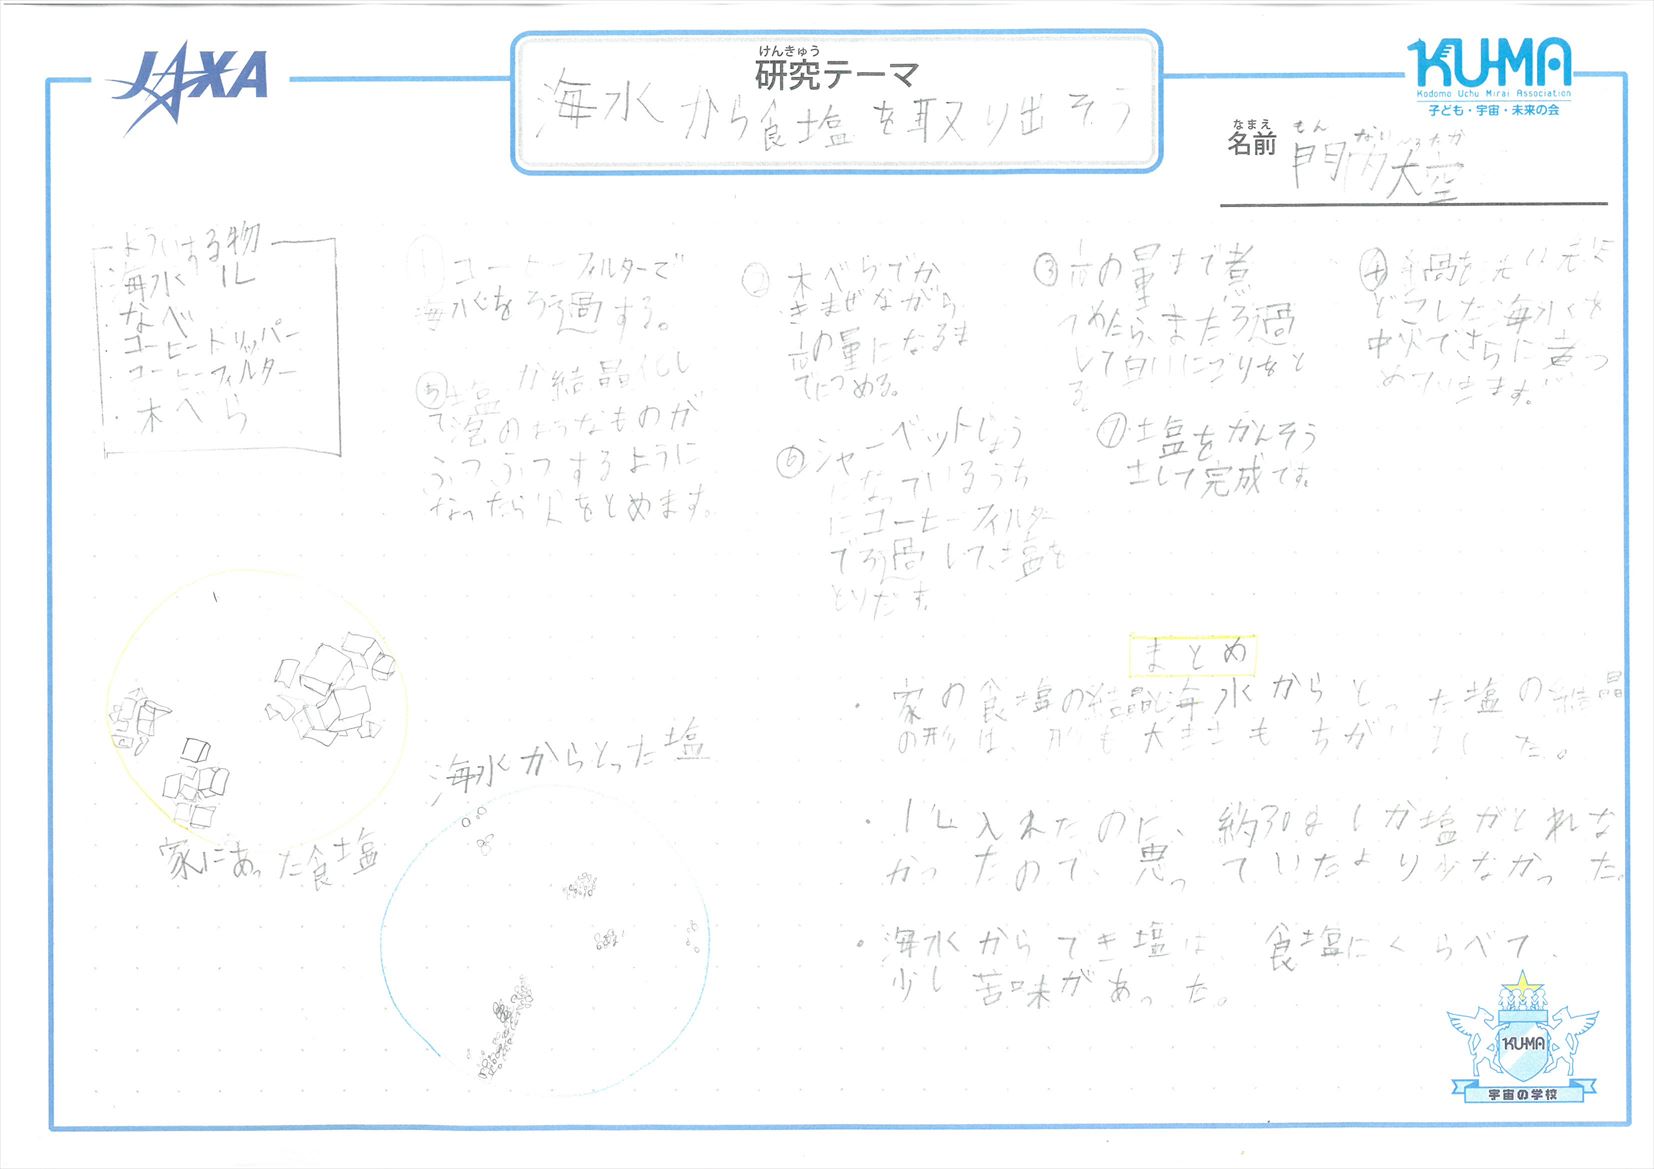 JAXA
けんきゅう
研究テーマ
海水から食塩を取り出そう
KU-MA
Kodomo Uchu Mirai Association
子ども・宇宙・未来の会
なまえ
名前
もん
たか
門
大空
よういする物
海水 1L
・なべ
・コーヒードリッパー
・コーヒーフィルター
・木べら
① コーヒーフィルターで
海水をろ過する。
② 木べらでか
きまぜながら
1/10の量になるま
でにつめる。
③ 1/10の量まで煮
つめたら、またろ過
して白いにごりをと
る。
④
こした海水を
中火でさらに煮つ
めていきます。
⑤ 塩が結晶化し
て泡のようなものが
ふつふつするように
なったら火をとめます。
⑥ シャーベットじょう
になっているうち
にコーヒーフィルター
でろ過して、塩を
とりだす。
⑦ 塩をかんそう
して完成です。
家にあった食塩
海水からとった塩
まとめ
・家の食塩の結晶と海水からとった塩の結晶
の形は、形も大きさもちがいました。
・1L入れたのに、約30gしか塩がとれな
かったので、思っていたより少なかった。
・海水からでき塩は、食塩にくらべて、
少し苦味があった。
KU-MA
宇宙の学校